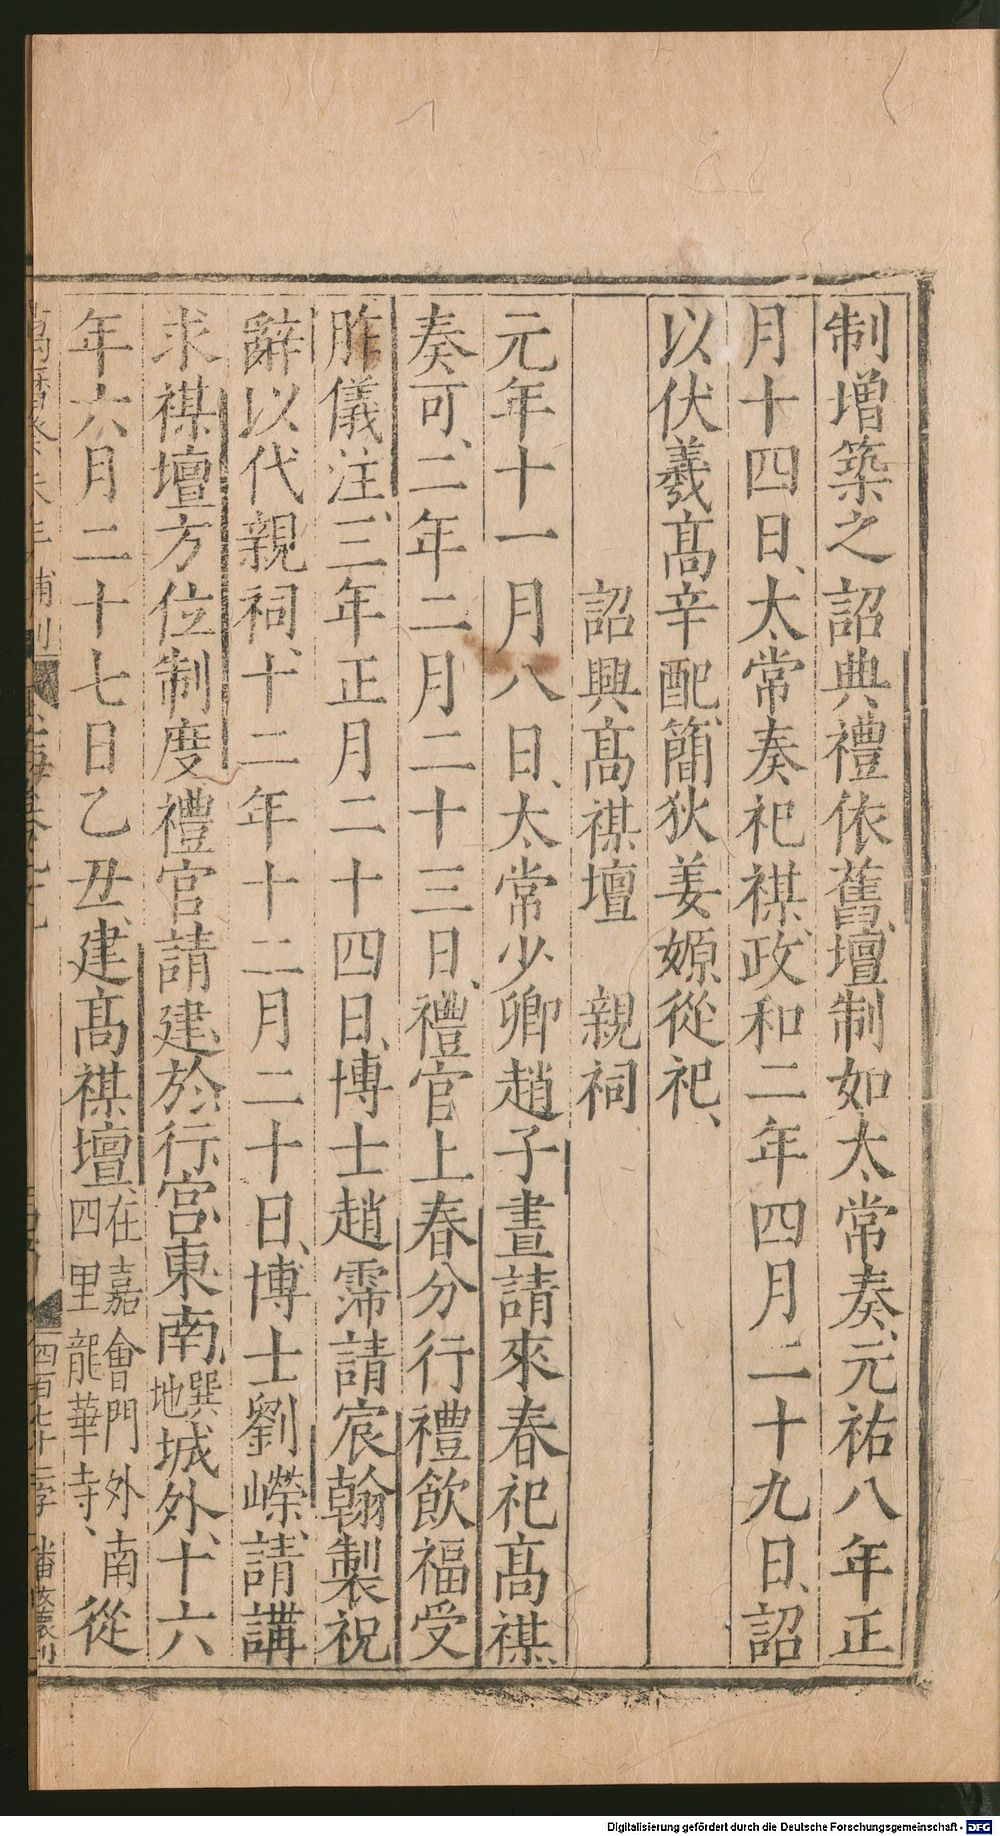 制增築之　詔典禮依舊、壇制如太常奏、元祐八年正
月十四日、太常奏祀禖、政和二年四月二十九日、詔
以伏羲高辛配、簡狄姜嫄從祀、
詔興高禖壇　親祠
元年十一月八日、太常少卿趙子晝請來春祀高禖
奏可、二年二月二十三日、禮官上春分行禮飲福受
胙儀注、三年正月二十四日、博士趙霈請宸翰製祝
辭以代親祠、十二年十二月二十日、博士劉嶸、請講
求禖壇方位制度禮官請建於行宮東南、撰地城外、十六
年六月二十七日乙丑、建高禖壇、在嘉會門外南四里龍華寺、從
萬曆癸未年補刊
四百七十二字
Digitalisierung gefördert durch die Deutsche Forschungsgemeinschaft - DFG